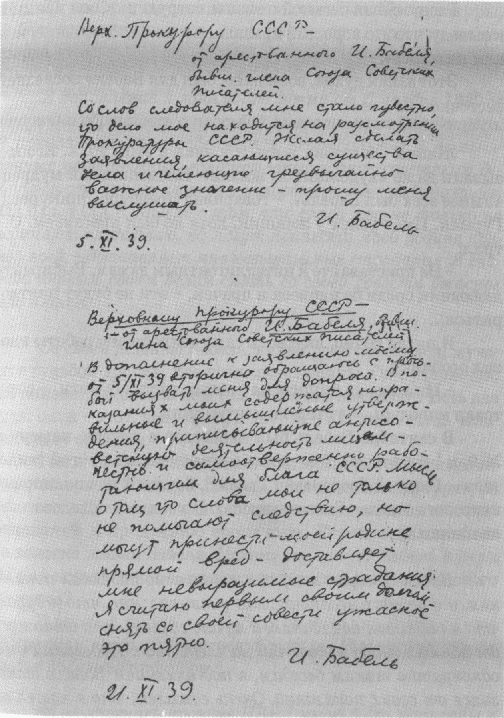 Верх. Прокурору СССР–
от арестованного И. Бабеля,
бывш. члена Союза Советских
Писателей.
Со слов следователя мне стало известно,
что дело мое находится на рассмотрении
Прокуратуры СССР. Желая сделать
заявления, касающиеся существа
дела и имеющие чрезвычайно
важное значение – прошу меня
выслушать.
И. Бабель
5. XI. 39.
Верховному прокурору СССР –
от арестованного И. Бабеля, бывш.
члена Союза Советских писателей
В дополнение к заявлению моему
от 5/XI 39 вторично обращаюсь с прось-
бой вызвать меня для допроса. В по-
казаниях моих содержатся непра-
вильные и вымышленные утверж-
дения, приписывающие антисо-
ветскую деятельность лицам –
честно и самоотверженно рабо-
тающим для блага СССР. Мысль
о том, что слова мои не только
не помогают следствию, но
могут принести моей родине
прямой вред – доставляет
мне невыразимые страдания.
Я считаю первым своим долгом
снять со своей совести ужасное
это пятно.
И. Бабель
21. XI. 39.